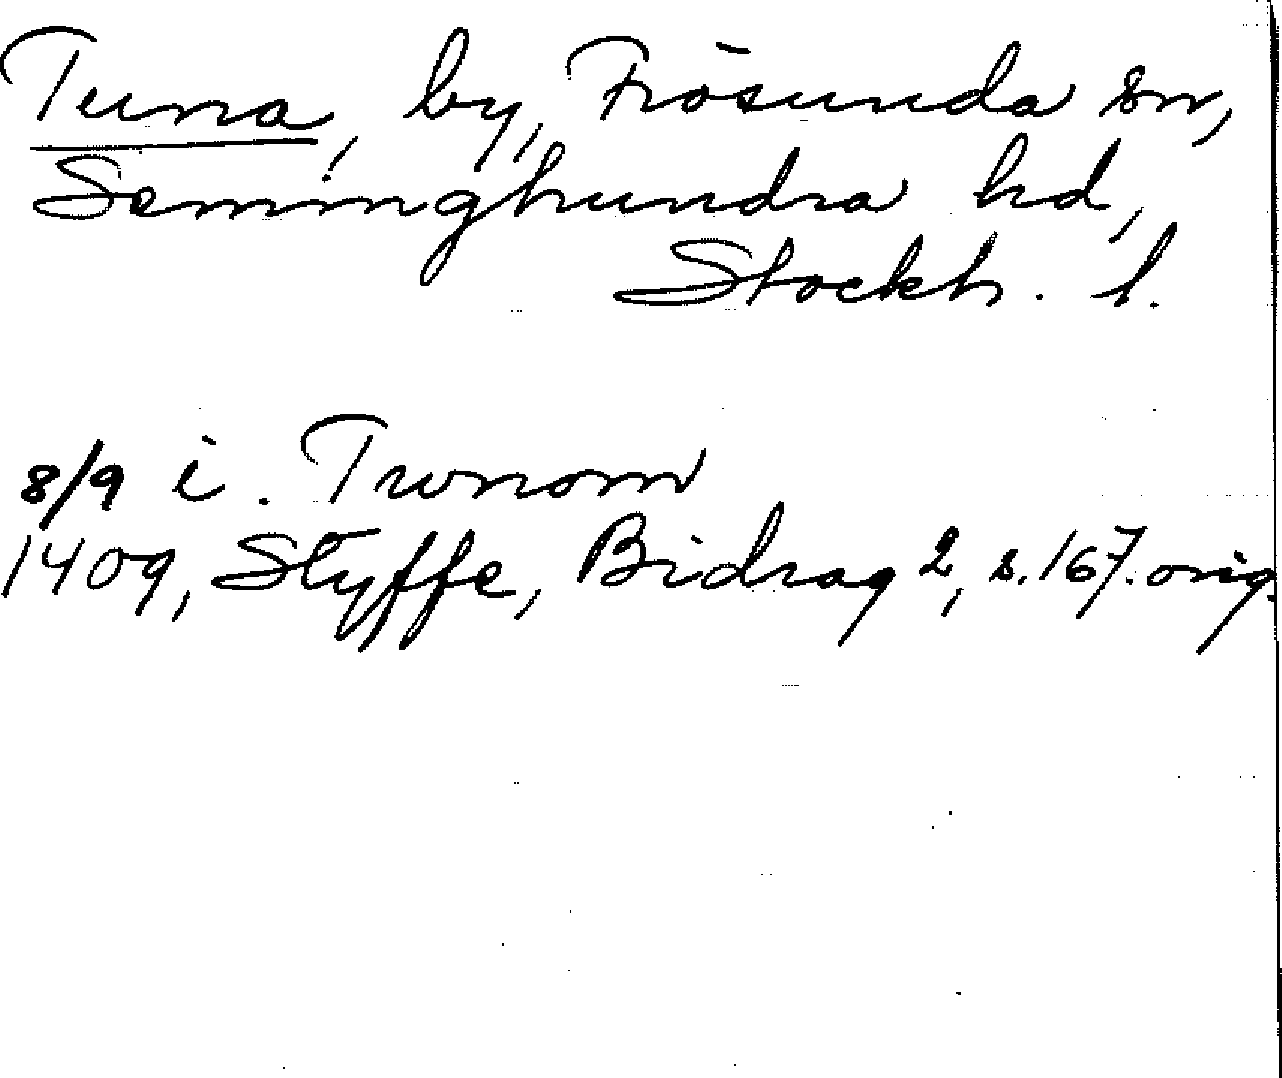 Tuna, by, Frösunda sn,
Seminghundra hd,
Stockh. l.
8/9 i. Twnom
1409, Styffe, Bidrag 2, s. 167. orig.